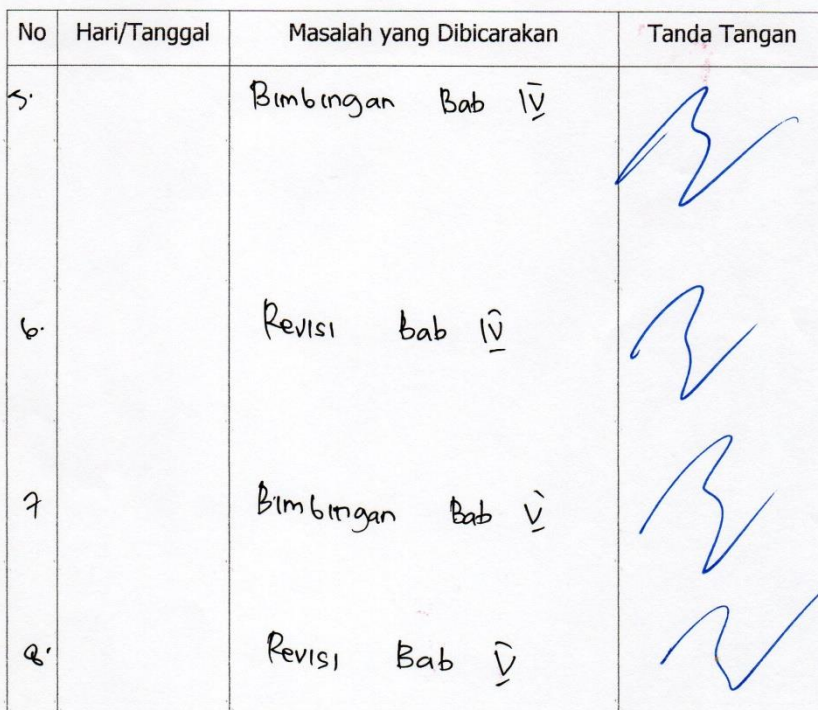 No Hari/Tanggal Masalah yang Dibicarakan Tanda Tangan
5. Bimbingan Bab IV
6. Revisi Bab IV
7 Bimbingan Bab V
8. Revisi Bab V